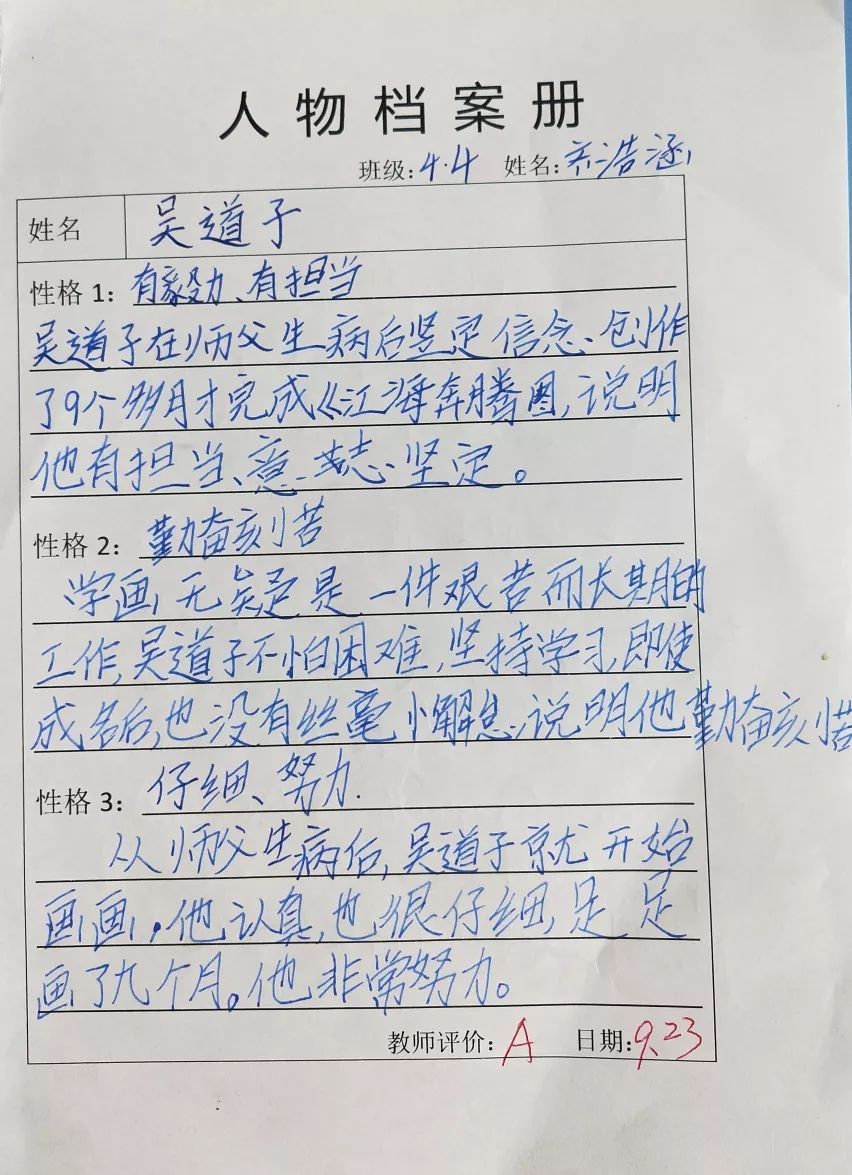 人物档案册
班级:4.4 姓名:齐浩涵
姓名 吴道子
性格 1: 有毅力、有担当
吴道子在师父生病后坚定信念、创作
了9个多月才完成《江海奔腾图,说明
他有担当、意志坚定。
性格 2: 勤奋刻苦
学画无疑是一件艰苦而长期的
工作,吴道子不怕困难,坚持学习,即使
成名后,也没有丝毫懈怠,说明他勤奋刻苦
性格 3: 仔细、努力.
从师父生病后,吴道子就开始
画画,他认真,也很仔细,足足
画了九个月。他非常努力。
教师评价: A 日期:9.23